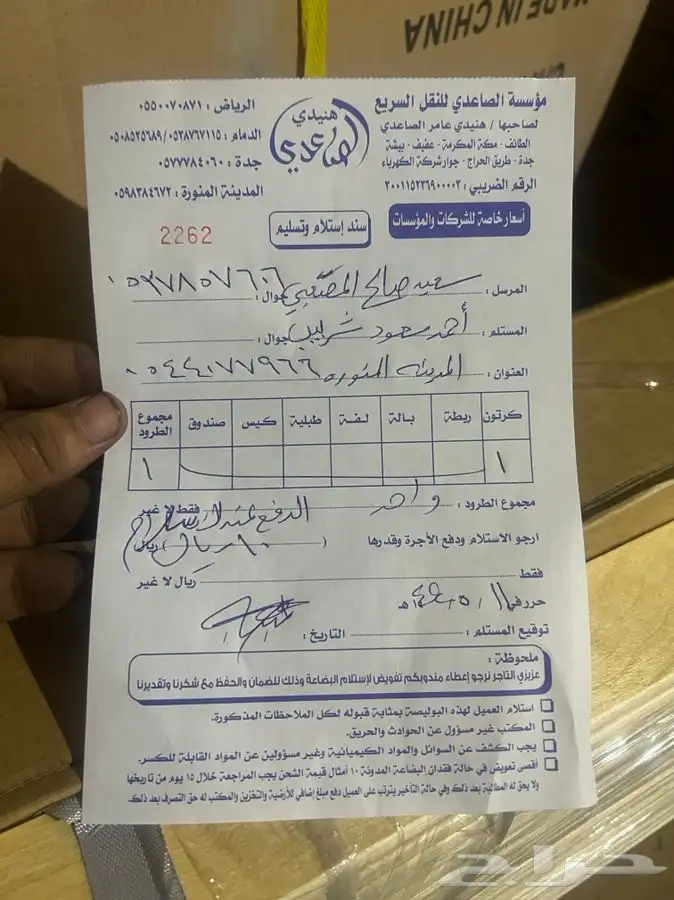 MADE IN CHINA
مؤسسة الصاعدي للنقل السريع
لصاحبها / هنيدي عامر الصاعدي
الطائف - مكة المكرمة - عفيف - بيشة
جدة - طريق الحراج - جوار شركة الكهرباء
الرقم الضريبي : ٣٠٠١١٥٢٣٦٩٠٠٠٠٣
هنيدي
الصاعدي
الرياض : ٠٥٥٠٠٧٠٨٧١
الدمام : ٠٥٣٨٧٦٧١١٥/٠٥٠٨٥٢٥٦٨٩
جدة : ٠٥٧٧٧٨٤٠٦٠
المدينة المنورة : ٠٥٩٨٣٨٤٦٧٢
أسعار خاصة للشركات والمؤسسات
سند إستلام وتسليم
2262
المرسل : سعيد صالح المصعبي جوال : ٠٥٣٧٨٥٧٦٠٦
المستلم : أحمد سعود جوال :
العنوان : المدينه المنوره ٠٥٤٤٠٧٧٩٦٦
كرتون ربطة بالة لفة طبلية كيس صندوق مجموع الطرود
١ ١
مجموع الطرود : واحد فقط لا غير
الدفع عند
ارجو الاستلام ودفع الأجرة وقدرها ( ) ريال
ريال
فقط ريال لا غير
حرر في ١١ / ٥ / هـ
توقيع المستلم : التاريخ :
ملحوظة :
عزيزي التاجر نرجو إعطاء مندوبكم تفويض لإستلام البضاعة وذلك للضمان والحفظ مع شكرنا وتقديرنا
استلام العميل لهذه البوليصة بمثابة قبوله لكل الملاحظات المذكورة.
المكتب غير مسؤول عن الحوادث والحريق.
يجب الكشف عن السوائل والمواد الكيميائية وغير مسؤولين عن المواد القابلة للكسر.
أقصى تعويض في حالة فقدان البضاعة المدونة ١٠ أمثال قيمة الشحن يجب المراجعة خلال ١٥ يوم من تاريخها
ولا يحق له المطالبة بعد ذلك وفي حالة التأخير يترتب على العميل دفع مبلغ إضافي للأرضية والتخزين والمكتب له حق التصرف بعد ذلك.
حراج